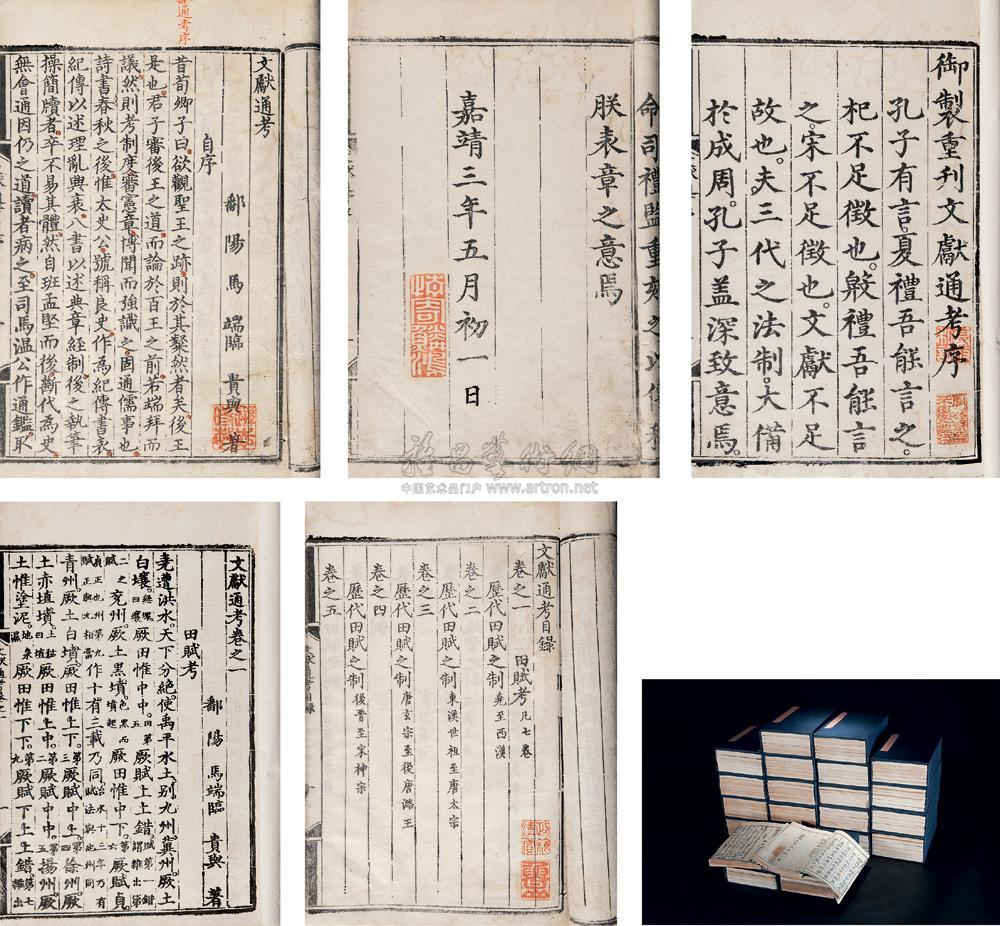 文獻通考
鄱陽馬端臨貴與著
自序
昔荀卿子曰欲觀聖王之跡則於其粲然者矣後王
是也君子審後王之道而論於百王之前若端拜而
議然則考制度審憲章博聞而強識之固通儒事也
詩書春秋之後惟太史公號稱良史作為紀傳書表
紀傳以述理亂興衰八書以述典章經制後之執筆
操簡牘者卒不易其體然自班孟堅而後斷代為史
無會通因仍之道讀者病之至司馬溫公作通鑑取
通考序
命司禮監重刻之以
朕表章之意焉
嘉靖三年五月初一日
御製重刊文獻通考序
孔子有言。夏禮吾能言之。
杞不足徵也。殷禮吾能言
之。宋不足徵也。文獻不足
故也。夫三代之法制。大備
於成周。孔子盖深致意焉。
雅昌藝術網
中国艺术品门户 www.artron.net
文獻通考卷之一
鄱陽馬端臨貴與著
田賦考
堯遭洪水。天下分絕。使禹平水土。別九州。冀州。厥土
白壤。無塊曰壤厥田惟中中。田第五厥賦上上錯。賦第一錯謂雜出第
二之賦兗州。厥土黑墳。色黑而墳起厥田惟中下。第六厥賦貞。
貞正也州第九賦正與九相當作十有三載乃同治水十三年乃有賦法與他州同
青州。厥土白墳。厥田惟上下。第三厥賦中上。第四徐州。厥
土赤埴墳。土黏曰埴厥田惟上中。第二厥賦中中。第五揚州。厥
土惟塗泥。地泉濕厥田惟下下。第九厥賦下上上錯第七雜出
文獻通考目錄
田賦考凡七卷
卷之一
歷代田賦之制堯至西漢
卷之二
歷代田賦之制東漢世祖至唐太宗
卷之三
歷代田賦之制唐玄宗至後唐潞王
卷之四
歷代田賦之制後晉至宋神宗
卷之五